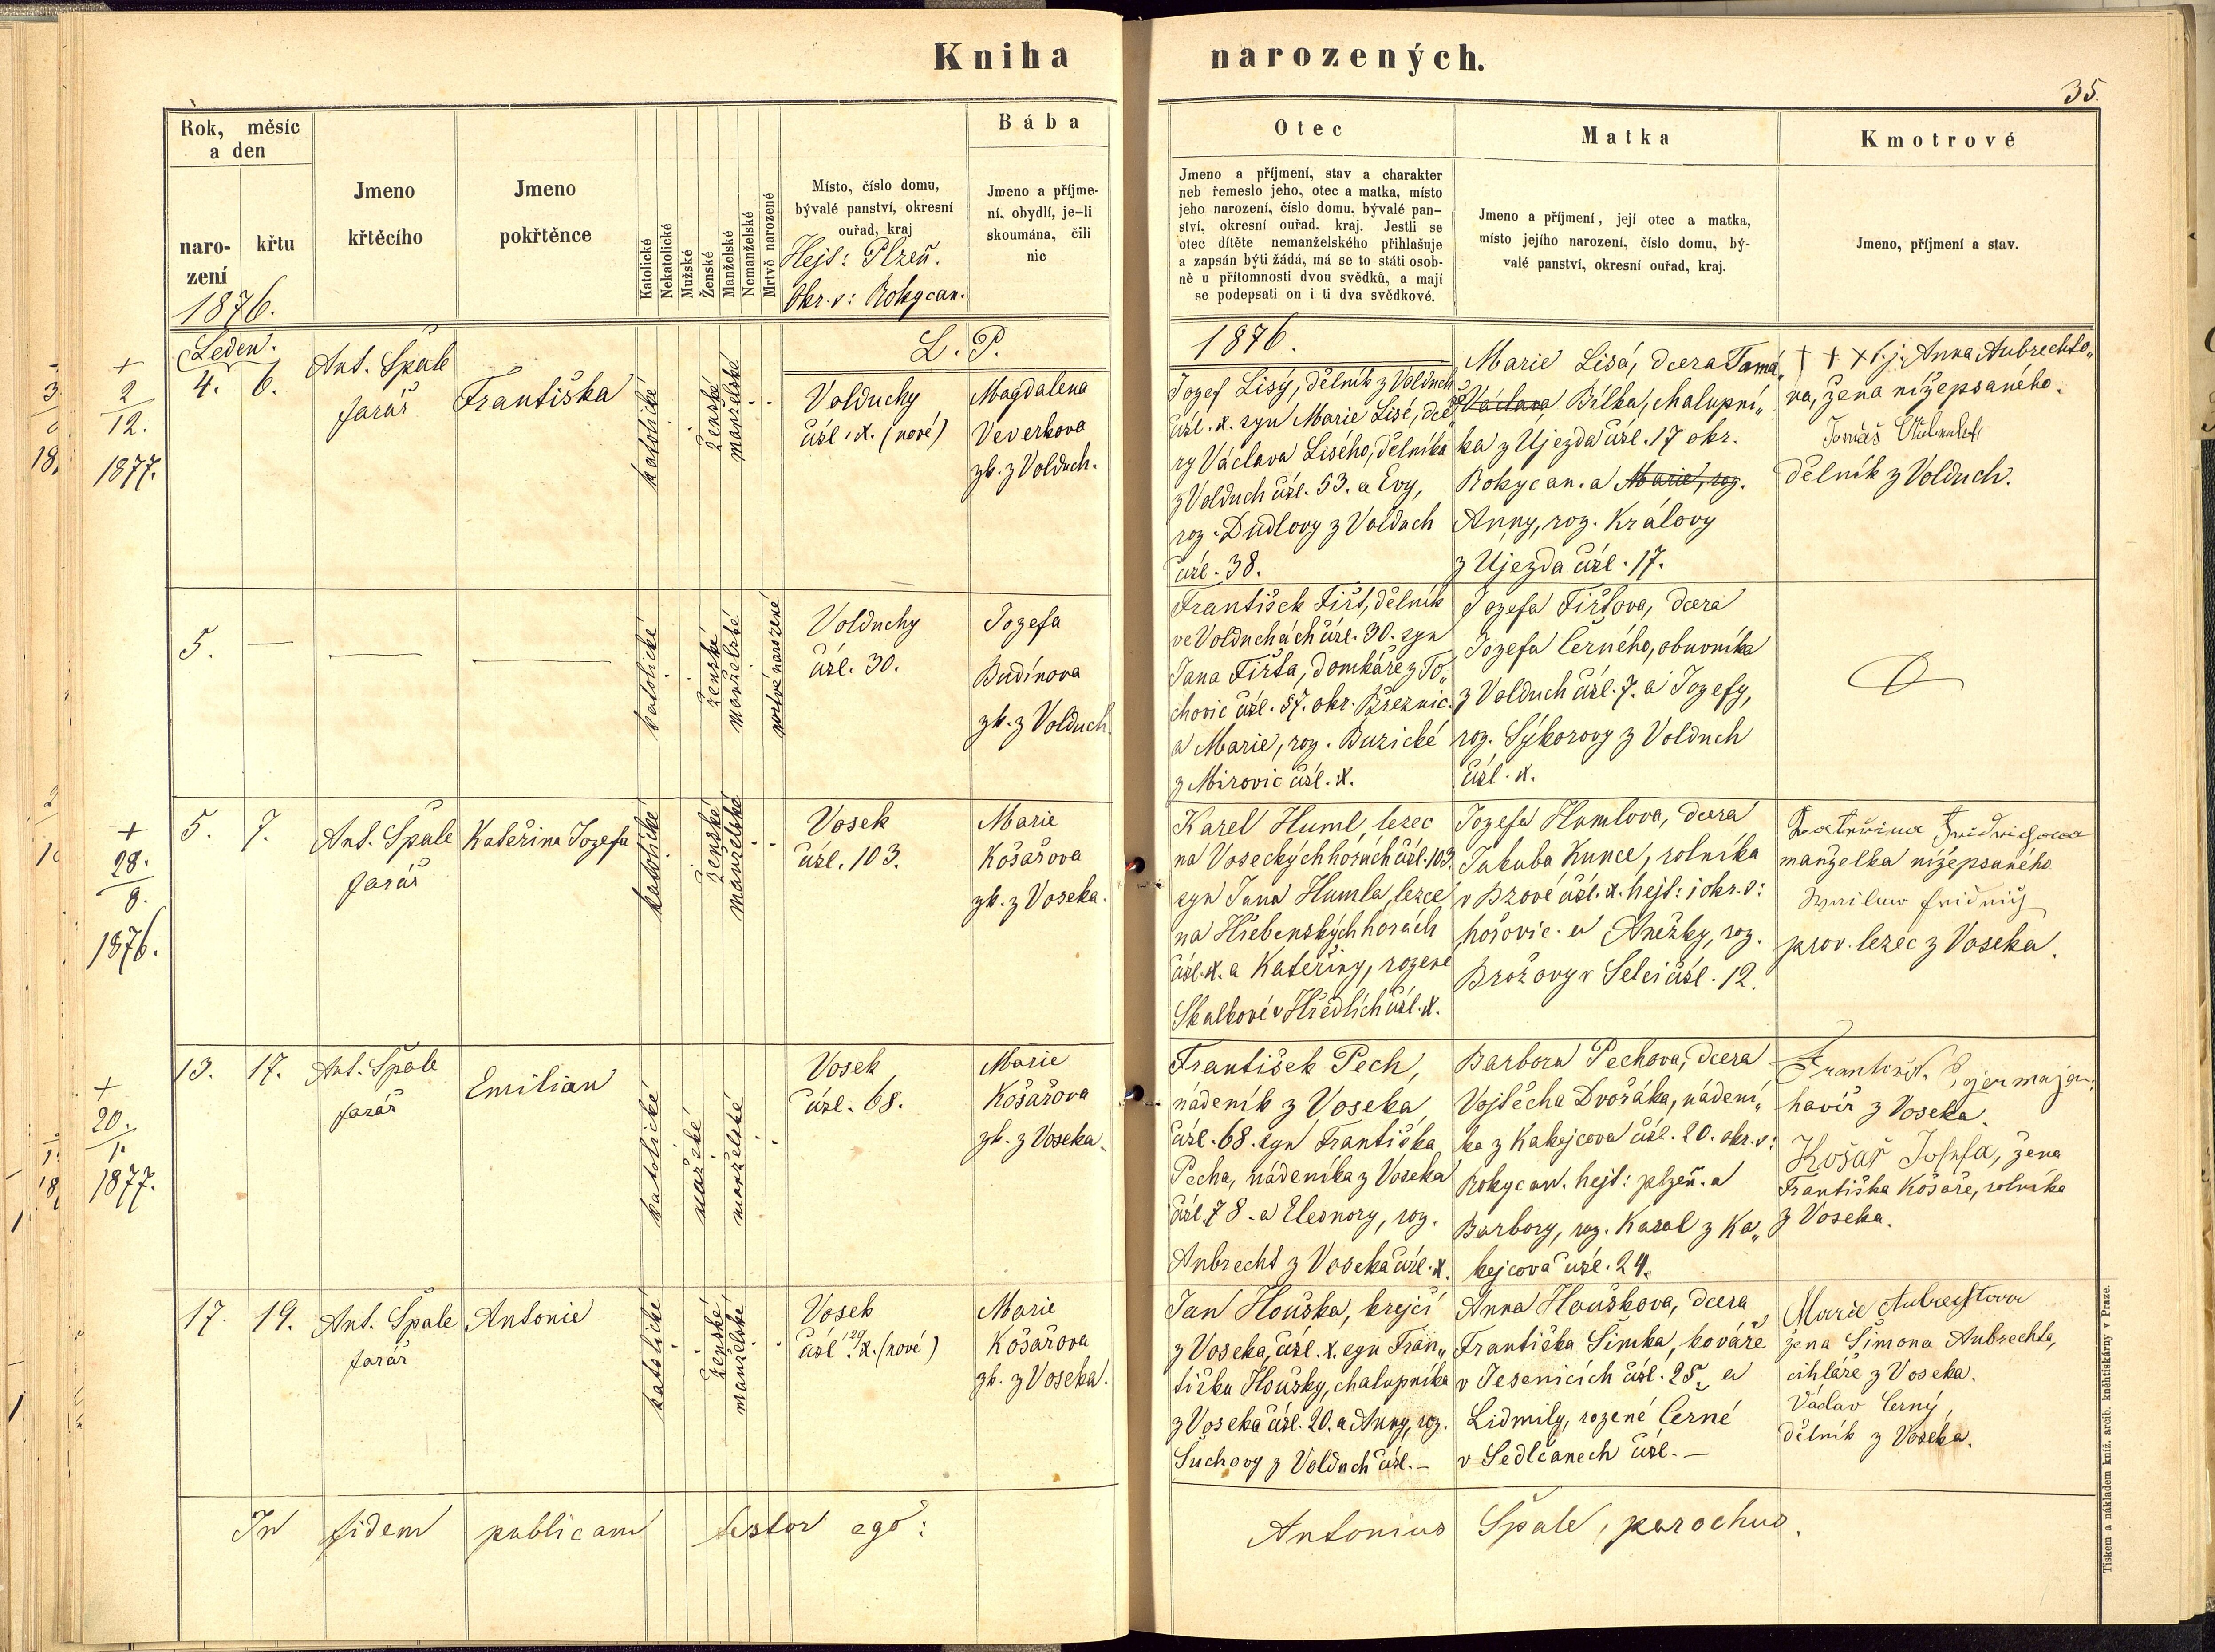 Kniha narozených.
35.
Rok, měsíc
a den
naro-
zení
křtu
1876.
Jmeno
křtěcího
Jmeno
pokřtěnce
Katolické
Nekatolické
Mužské
Ženské
Manželské
Nemanželské
Mrtvě narozené
Místo, číslo domu,
bývalé panství, okresní
ouřad, kraj
Hejt: Plzeň.
Okr. s: Rokycan.
Bába
Jmeno a příjme-
ní, obydlí, je-li
skoumána, čili
nic
Otec
Jmeno a příjmení, stav a charakter
neb řemeslo jeho, otec a matka, místo
jeho narození, číslo domu, bývalé pan-
ství, okresní ouřad, kraj. Jestli se
otec dítěte nemanželského přihlašuje
a zapsán býti žádá, má se to státi osob-
ně u přítomnosti dvou svědků, a mají
se podepsati on i ti dva svědkové.
Matka
Jmeno a příjmení, její otec a matka,
místo jejího narození, číslo domu, bý-
valé panství, okresní ouřad, kraj.
Kmotrové
Jmeno, příjmení a stav.
+
2
12.
1877.
Leden.
4. 6.
Ant. Špale
farář
Františka
katolické
ženské
manželské
L. P.
Volduchy
čísl. x. (nové)
Magdalena
Veverkova
zk. z Volduch.
1876.
Jozef Lisý, dělník z Volduch
čísl. x. syn Marie Lisé, dce„
ry Václava Lisého, dělníka
z Volduch čísl. 53. a Evy,
roz. Dudlovy z Volduch
čísl. 38.
Marie Lisá, dcera Tomá„
še Václava Bílka, chalupní„
ka z Ujezda čísl. 17 okr.
Rokycan. a Marie, roz.
Anny, roz. Královy
z Ujezda čísl. 17.
+ + + t. j. Anna Aubrechto„
va, žena nížepsaného.
Tomáš Aubrecht
dělník z Volduch.
5. — — —
katolické
ženské
manželské
mrtvé narozené
Volduchy
čísl. 30.
Jozefa
Budínova
zk. z Volduch.
František Fišt, dělník
ve Volduchách čísl. 30. syn
Jana Fišta, domkáře z To„
chovic čísl. 57. okr. Březnic.
a Marie, roz. Buzické
z Mirovic čísl. x.
Jozefa Fištova, dcera
Jozefa Černého, obuvníka
z Volduch čísl. 7. a Jozefy,
roz. Sýkorovy z Volduch
čísl. x.
+
28.
8.
1876.
5. 7.
Ant. Špale
farář
Kateřina Jozefa
katolické
ženské
manželské
Vosek
čísl. 103.
Marie
Kósařova
zk. z Voseka.
Karel Huml, lezec
na Voseckých horách čísl. 103.
syn Jana Humla, lezce
na Hřebenských horách
čísl. x. a Kateřiny, rozené
Skalkové v Hředlích čísl. x.
Jozefa Humlova, dcera
Jakuba Kunce, rolníka
v Bzové čísl. x. hejt: i okr. s:
hořovic. a Anežky, roz.
Brožovy v Selci čísl. 12.
Kateřina Fridrichowa
manželka nížepsaného.
prov. lezec z Voseka.
+
20.
1.
1877.
13. 17.
Ant. Špale
farář
Emilian
katolické
mužské
manželské
Vosek
čísl. 68.
Marie
Kósařova
zk. z Voseka.
František Pech,
nádeník z Voseka
čísl. 68. syn Františka
Pecha, nádeníka z Voseka
čísl. 78. a Eleonory, roz.
Aubrecht z Voseka čísl. x.
Barbora Pechova, dcera
Vojtěcha Dvořáka, nádení„
ka z Kakejcova čísl. 20. okr. s:
Rokycan. hejt: plzeň. a
Barbory, roz. Kasal z Ka„
kejcova čísl. 24.
havíř z Voseka.
Košař Josefa, žena
Františka Kósaře, rolníka
z Voseka.
17. 19.
Ant. Špale
farář
Antonie
katolické
ženské
manželské
Vosek
čísl. x. (nové)
Marie
Kósařova
zk. z Voseka.
Jan Houška, krejčí
z Voseka, čísl. x. syn Fran„
tiška Houšky, chalupníka
z Voseka čísl. 20. a Anny, roz.
Suchovy z Volduch čísl. —
Anna Houškova, dcera
Františka Šimka, kováře
v Jesenicích čísl. 25. a
Lidmily, rozené Černé
v Sedlčanech čísl. —
Marie Aubrechtova
žena Šimona Aubrechta,
cihláře z Voseka.
Václav Černý,
dělník z Voseka.
In fidem publicam testor ego:
Antonius Špale, parochus.
Tiskem a nákladem kníž. arcib. kněhtiskárny v Praze.